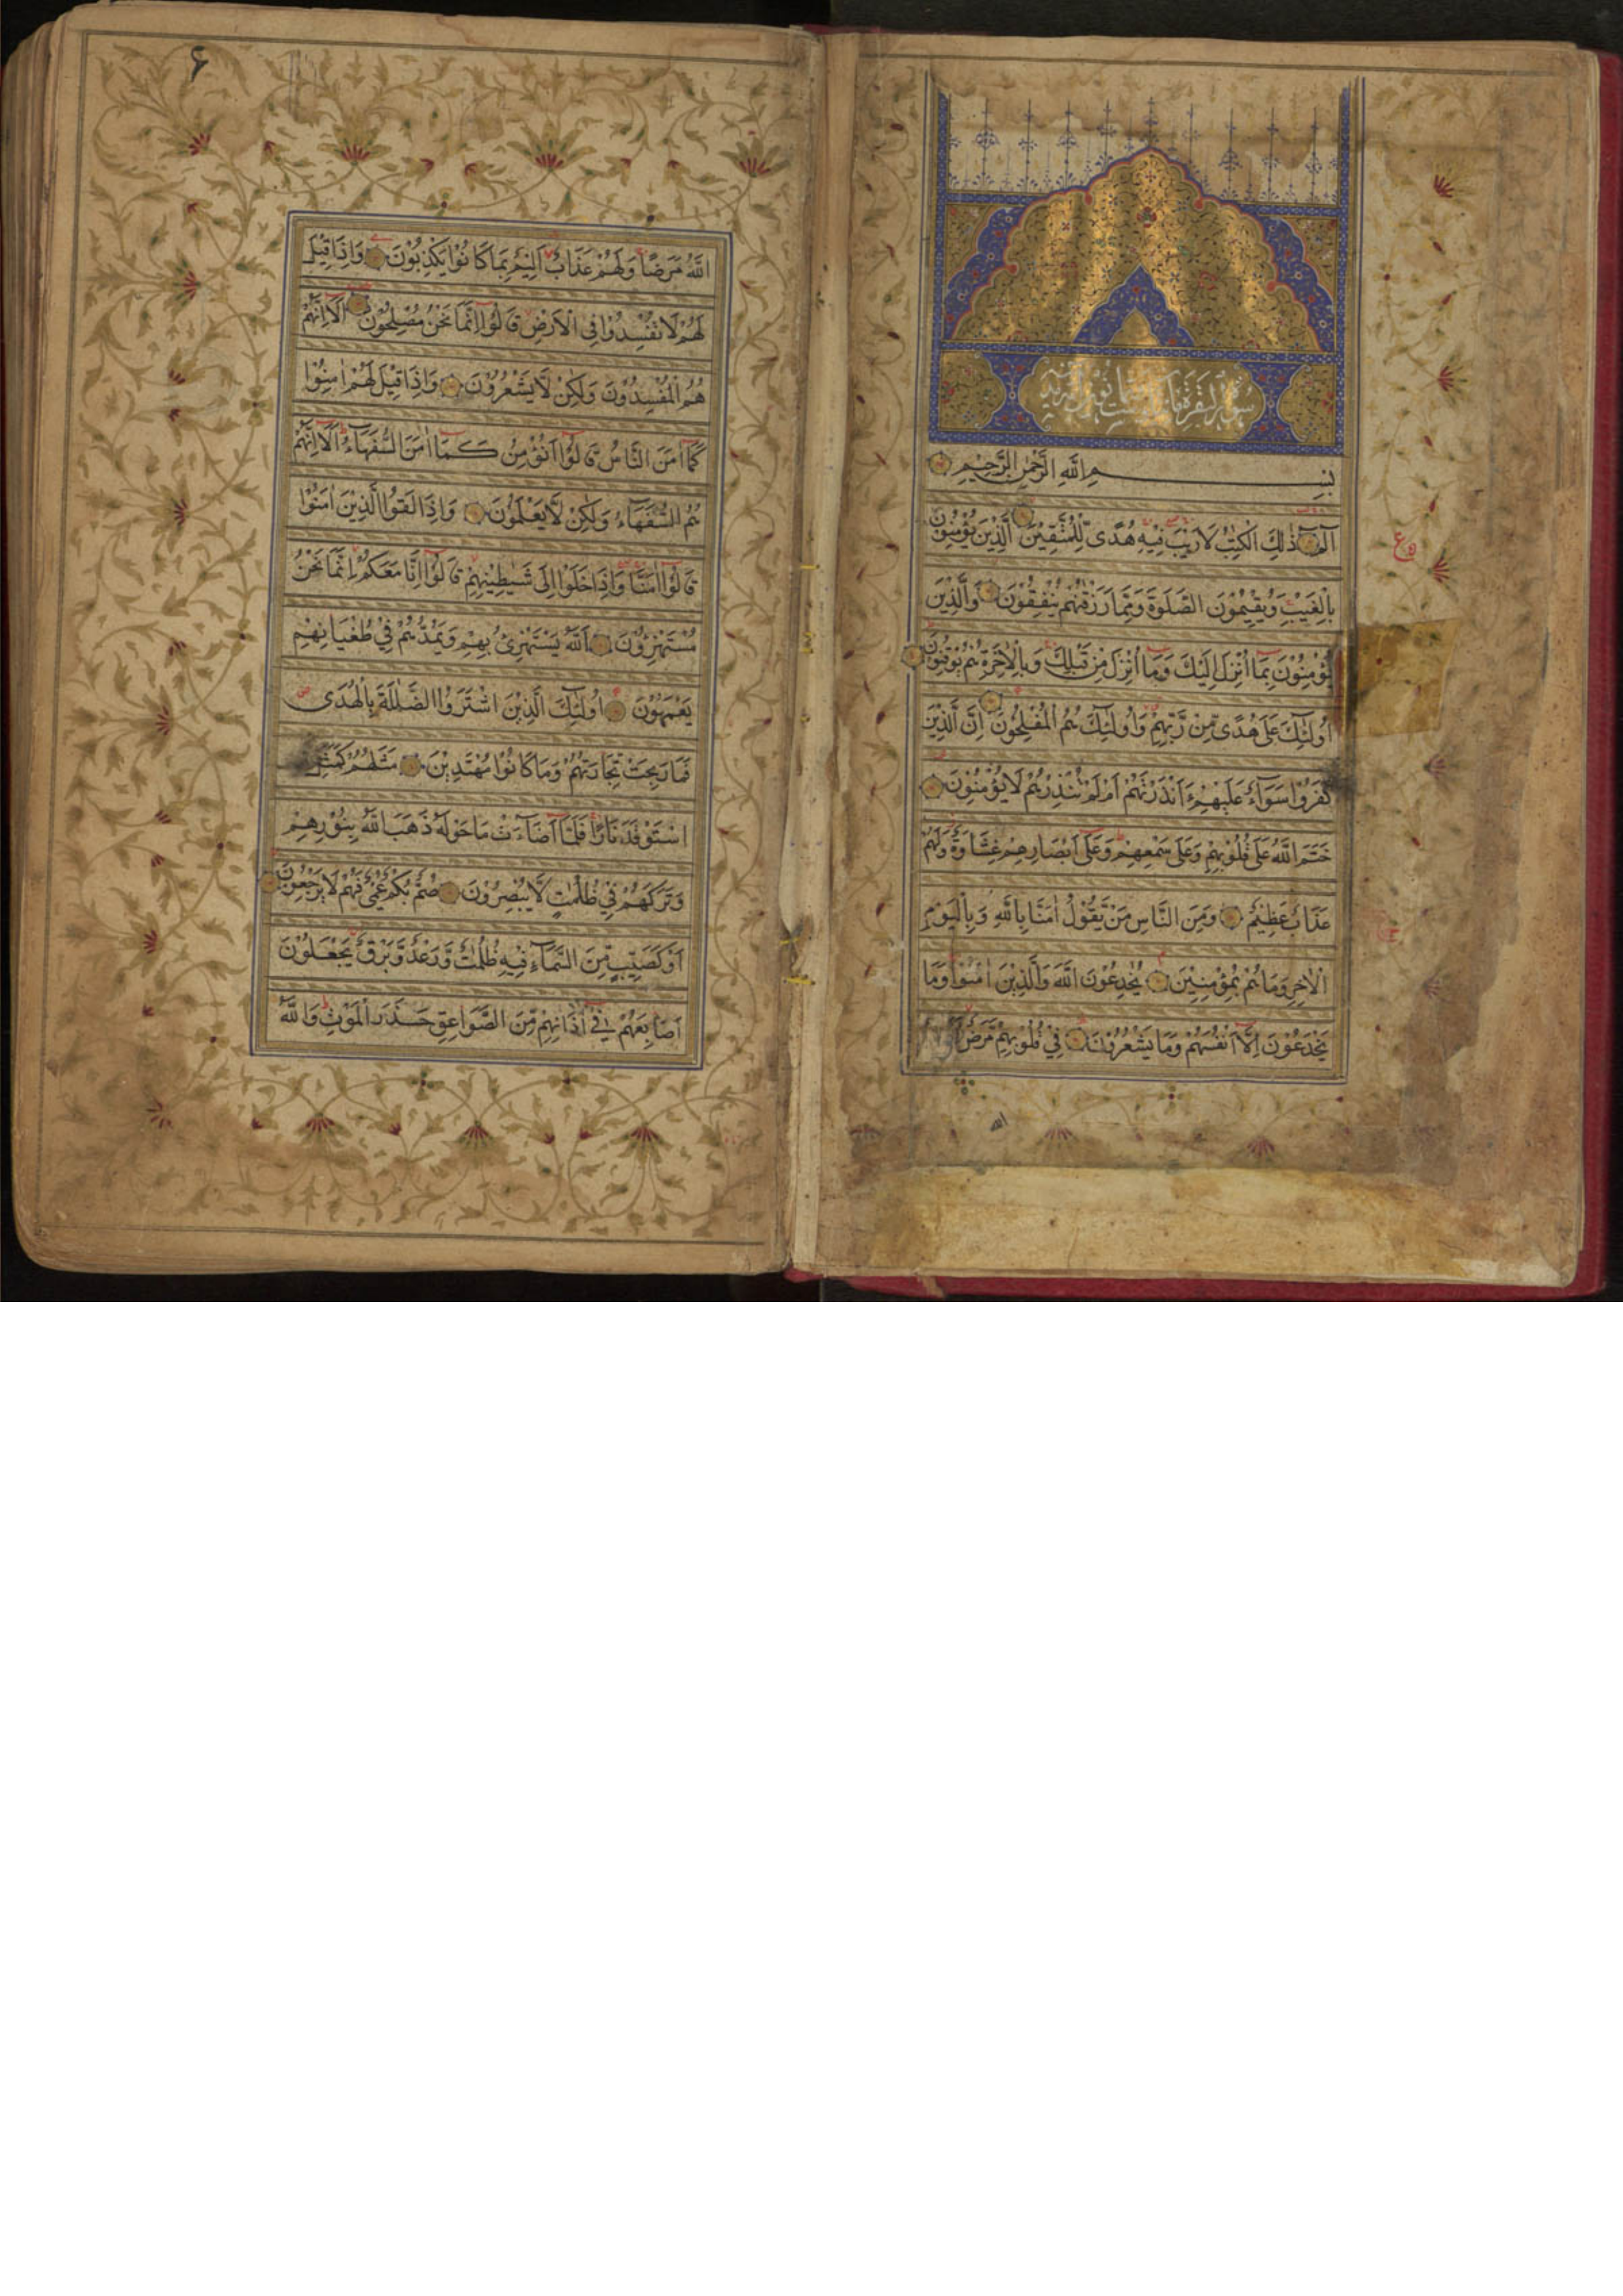 سورة البقرة مائتان وست وثمانون آية
بِسْمِ اللَّهِ الرَّحْمٰنِ الرَّحِيْمِ
الٓمٓ ذٰلِكَ الْكِتٰبُ لَا رَيْبَ فِيْهِ هُدًى لِّلْمُتَّقِيْنَ الَّذِيْنَ يُؤْمِنُوْنَ
بِالْغَيْبِ وَيُقِيْمُوْنَ الصَّلٰوةَ وَمِمَّا رَزَقْنٰهُمْ يُنْفِقُوْنَ وَالَّذِيْنَ
يُؤْمِنُوْنَ بِمَا اُنْزِلَ اِلَيْكَ وَمَا اُنْزِلَ مِنْ قَبْلِكَ وَبِالْاٰخِرَةِ هُمْ يُوْقِنُوْنَ
اُولٰٓئِكَ عَلٰى هُدًى مِّنْ رَّبِّهِمْ وَاُولٰٓئِكَ هُمُ الْمُفْلِحُوْنَ اِنَّ الَّذِيْنَ
كَفَرُوْا سَوَآءٌ عَلَيْهِمْ ءَاَنْذَرْتَهُمْ اَمْ لَمْ تُنْذِرْهُمْ لَا يُؤْمِنُوْنَ
خَتَمَ اللَّهُ عَلٰى قُلُوْبِهِمْ وَعَلٰى سَمْعِهِمْ وَعَلٰى اَبْصَارِهِمْ غِشَاوَةٌ وَّلَهُمْ
عَذَابٌ عَظِيْمٌ وَمِنَ النَّاسِ مَنْ يَّقُوْلُ اٰمَنَّا بِاللَّهِ وَبِالْيَوْمِ
الْاٰخِرِ وَمَا هُمْ بِمُؤْمِنِيْنَ يُخٰدِعُوْنَ اللَّهَ وَالَّذِيْنَ اٰمَنُوْا وَمَا
يَخْدَعُوْنَ اِلَّا اَنْفُسَهُمْ وَمَا يَشْعُرُوْنَ فِيْ قُلُوْبِهِمْ مَّرَضٌ
۶
اللَّهُ مَرَضًا وَلَهُمْ عَذَابٌ اَلِيْمٌ بِمَا كَانُوْا يَكْذِبُوْنَ وَاِذَا قِيْلَ
لَهُمْ لَا تُفْسِدُوْا فِي الْاَرْضِ قَالُوْا اِنَّمَا نَحْنُ مُصْلِحُوْنَ اَلَا اِنَّهُمْ
هُمُ الْمُفْسِدُوْنَ وَلٰكِنْ لَّا يَشْعُرُوْنَ وَاِذَا قِيْلَ لَهُمْ اٰمِنُوْا
كَمَا اٰمَنَ النَّاسُ قَالُوْا اَنُؤْمِنُ كَمَا اٰمَنَ السُّفَهَآءُ اَلَا اِنَّهُمْ
هُمُ السُّفَهَآءُ وَلٰكِنْ لَّا يَعْلَمُوْنَ وَاِذَا لَقُوا الَّذِيْنَ اٰمَنُوْا
قَالُوْا اٰمَنَّا وَاِذَا خَلَوْا اِلٰى شَيٰطِيْنِهِمْ قَالُوْا اِنَّا مَعَكُمْ اِنَّمَا نَحْنُ
مُسْتَهْزِؤُنَ اَللَّهُ يَسْتَهْزِئُ بِهِمْ وَيَمُدُّهُمْ فِيْ طُغْيَانِهِمْ
يَعْمَهُوْنَ اُولٰٓئِكَ الَّذِيْنَ اشْتَرَوُا الضَّلٰلَةَ بِالْهُدٰى
فَمَا رَبِحَتْ تِجَارَتُهُمْ وَمَا كَانُوْا مُهْتَدِيْنَ مَثَلُهُمْ كَمَثَلِ
اسْتَوْقَدَ نَارًا فَلَمَّا اَضَآءَتْ مَا حَوْلَهُ ذَهَبَ اللَّهُ بِنُوْرِهِمْ
وَتَرَكَهُمْ فِيْ ظُلُمٰتٍ لَّا يُبْصِرُوْنَ صُمٌّ بُكْمٌ عُمْيٌ فَهُمْ لَا يَرْجِعُوْنَ
اَوْ كَصَيِّبٍ مِّنَ السَّمَآءِ فِيْهِ ظُلُمٰتٌ وَّرَعْدٌ وَّبَرْقٌ يَجْعَلُوْنَ
اَصَابِعَهُمْ فِيْ اٰذَانِهِمْ مِّنَ الصَّوَاعِقِ حَذَرَ الْمَوْتِ وَاللَّهُ